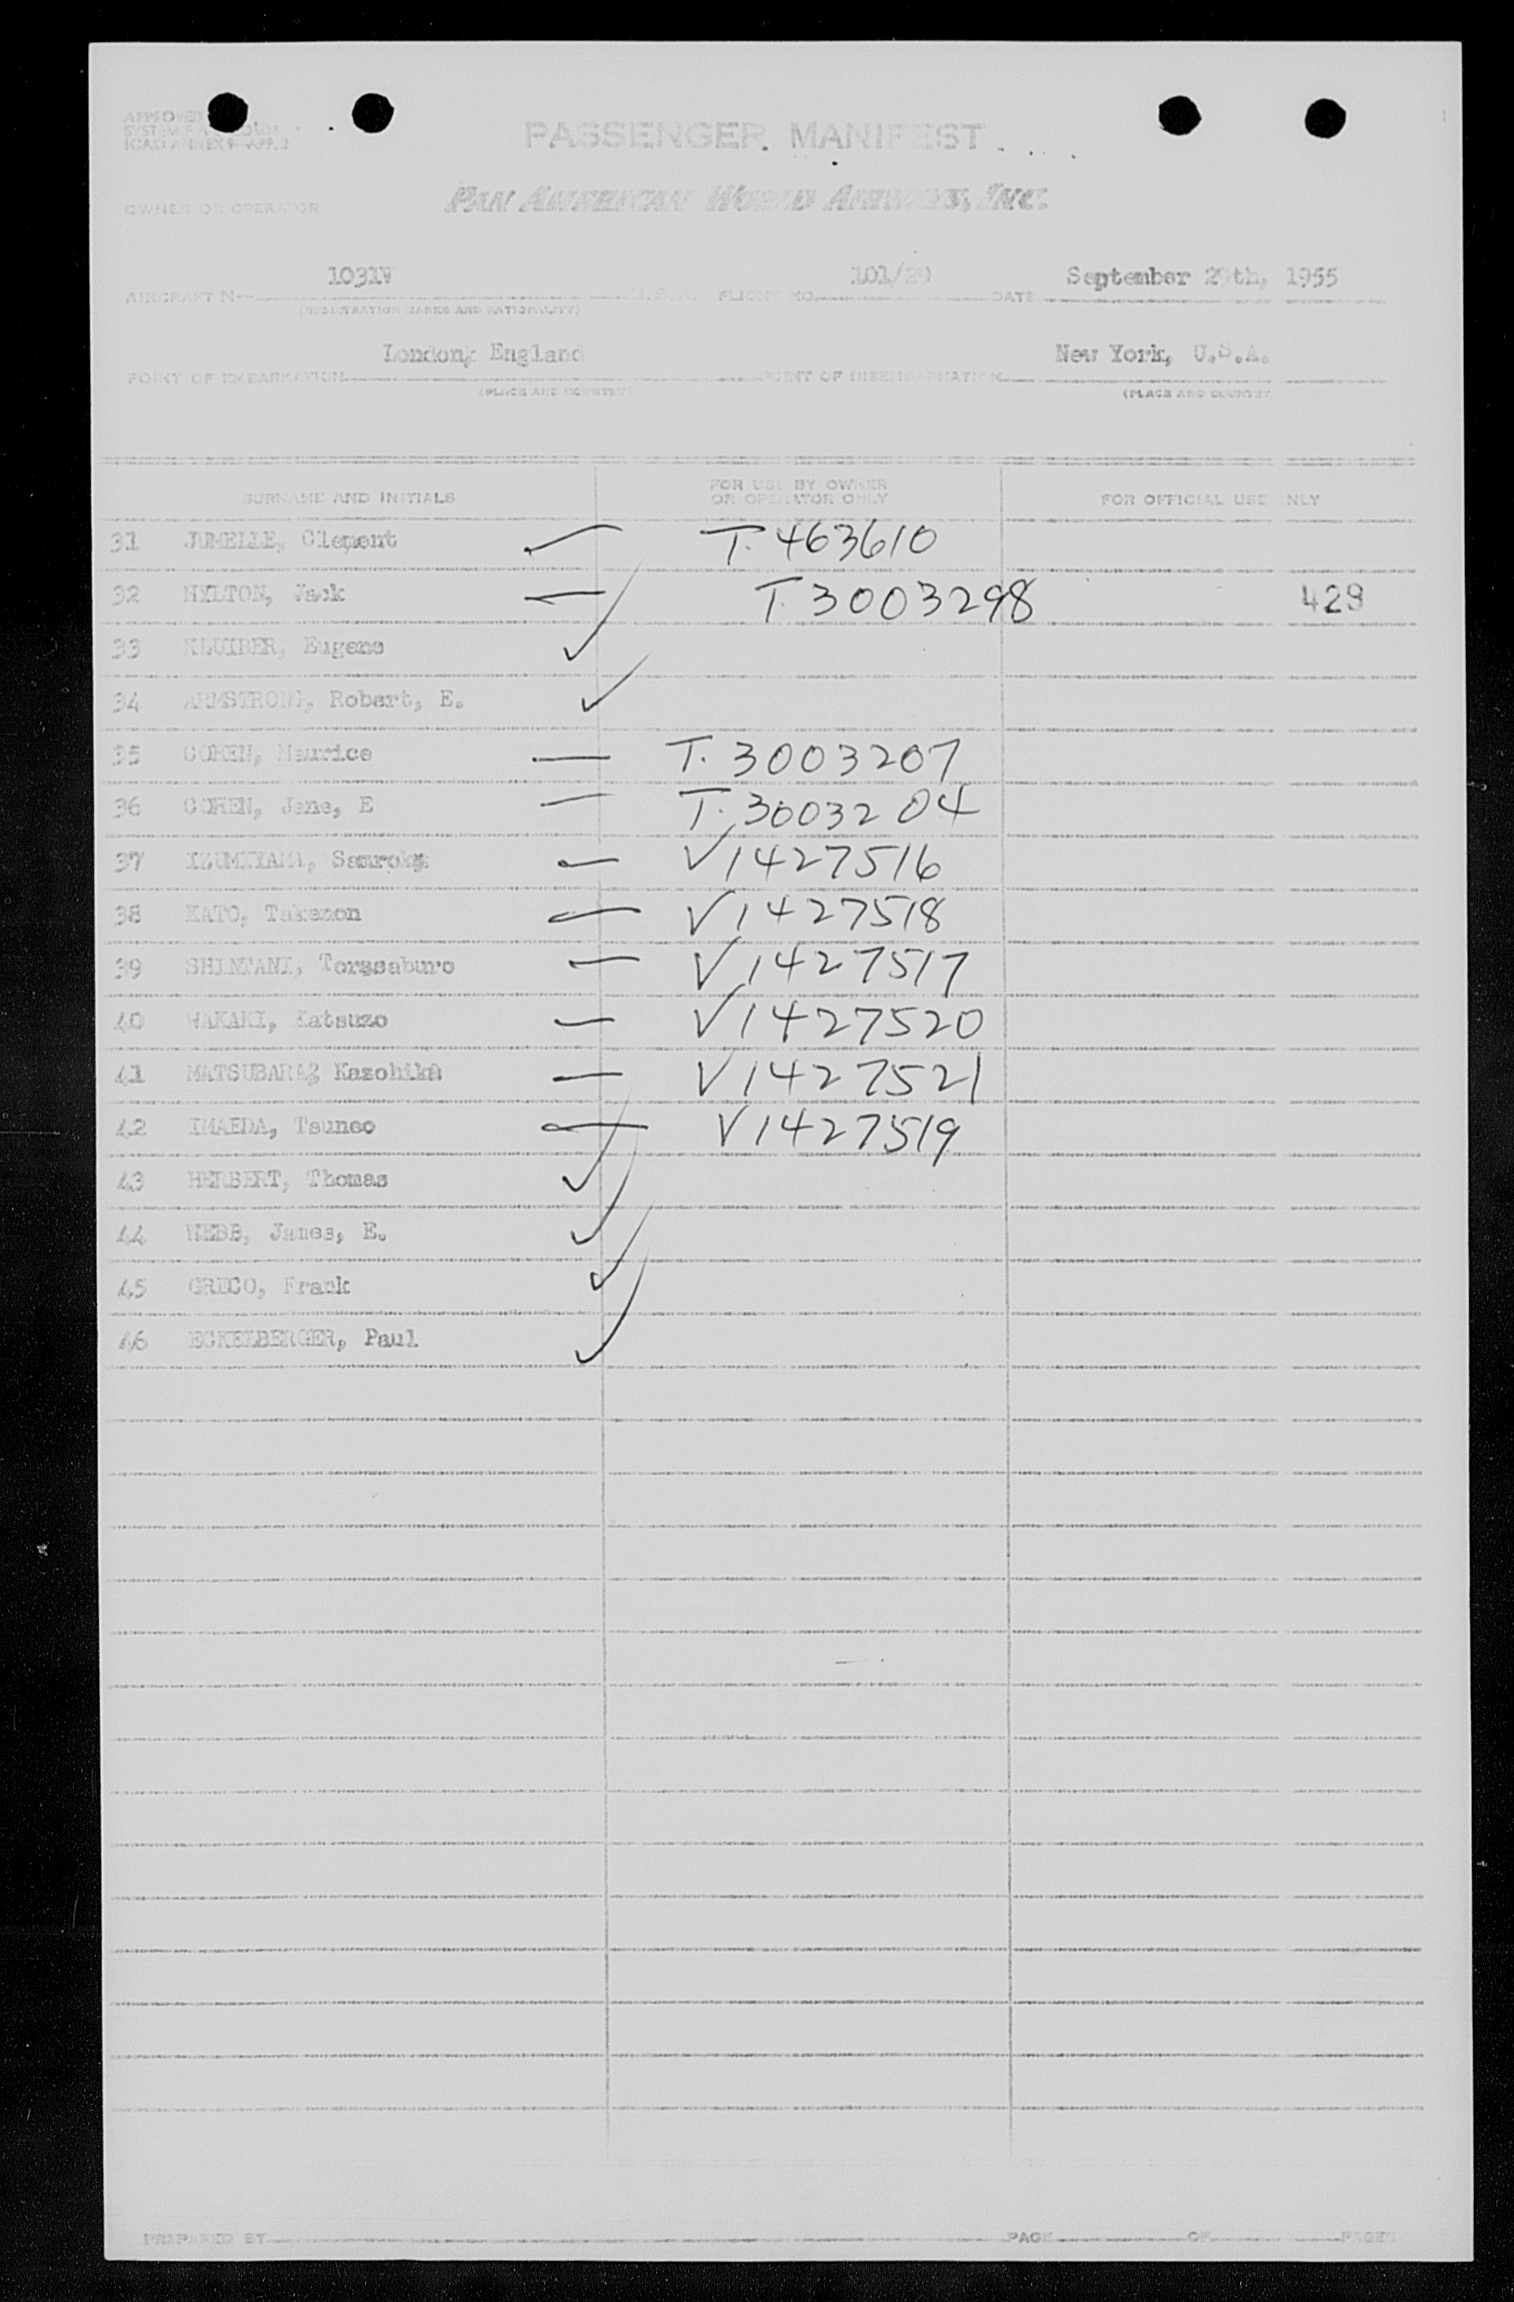 APPROVED
ICAO ANNEX 9 APP. 2
PASSENGER MANIFEST
PAN AMERICAN WORLD AIRWAYS, INC.
OWNER OR OPERATOR
1031V 101/29 September 29th, 1955
AIRCRAFT N U.S.A. FLIGHT NO. DATE
(REGISTRATION MARKS AND NATIONALITY)
London, England New York, U.S.A.
POINT OF EMBARKATION POINT OF DISEMBARKATION
(PLACE AND COUNTRY) (PLACE AND COUNTRY
SURNAME AND INITIALS FOR USE BY OWNER OR OPERATOR ONLY FOR OFFICIAL USE ONLY
31 JUMELLE, Clement T. 463610
32 HYLTON, Jack T. 3003298 429
33 Eugene
34 ARMSTRONG, Robert, E.
35 COHEN, Maurice T. 3003207
36 COHEN, Jane, E T. 3003204
37 V1427516
38 KATO, Takemon V1427518
39 SHINTANI, Torasaburo V1427517
40 WAKAKI, Katsuzo V1427520
41 MATSUBARA, Kazohika V1427521
42 IMAEDA, Tsuneo V1427519
43 HERBERT, Thomas
44 WEBB, James, E.
45 GRECO, Frank
46 ECKELBERGER, Paul
PREPARED BY PAGE OF PAGES